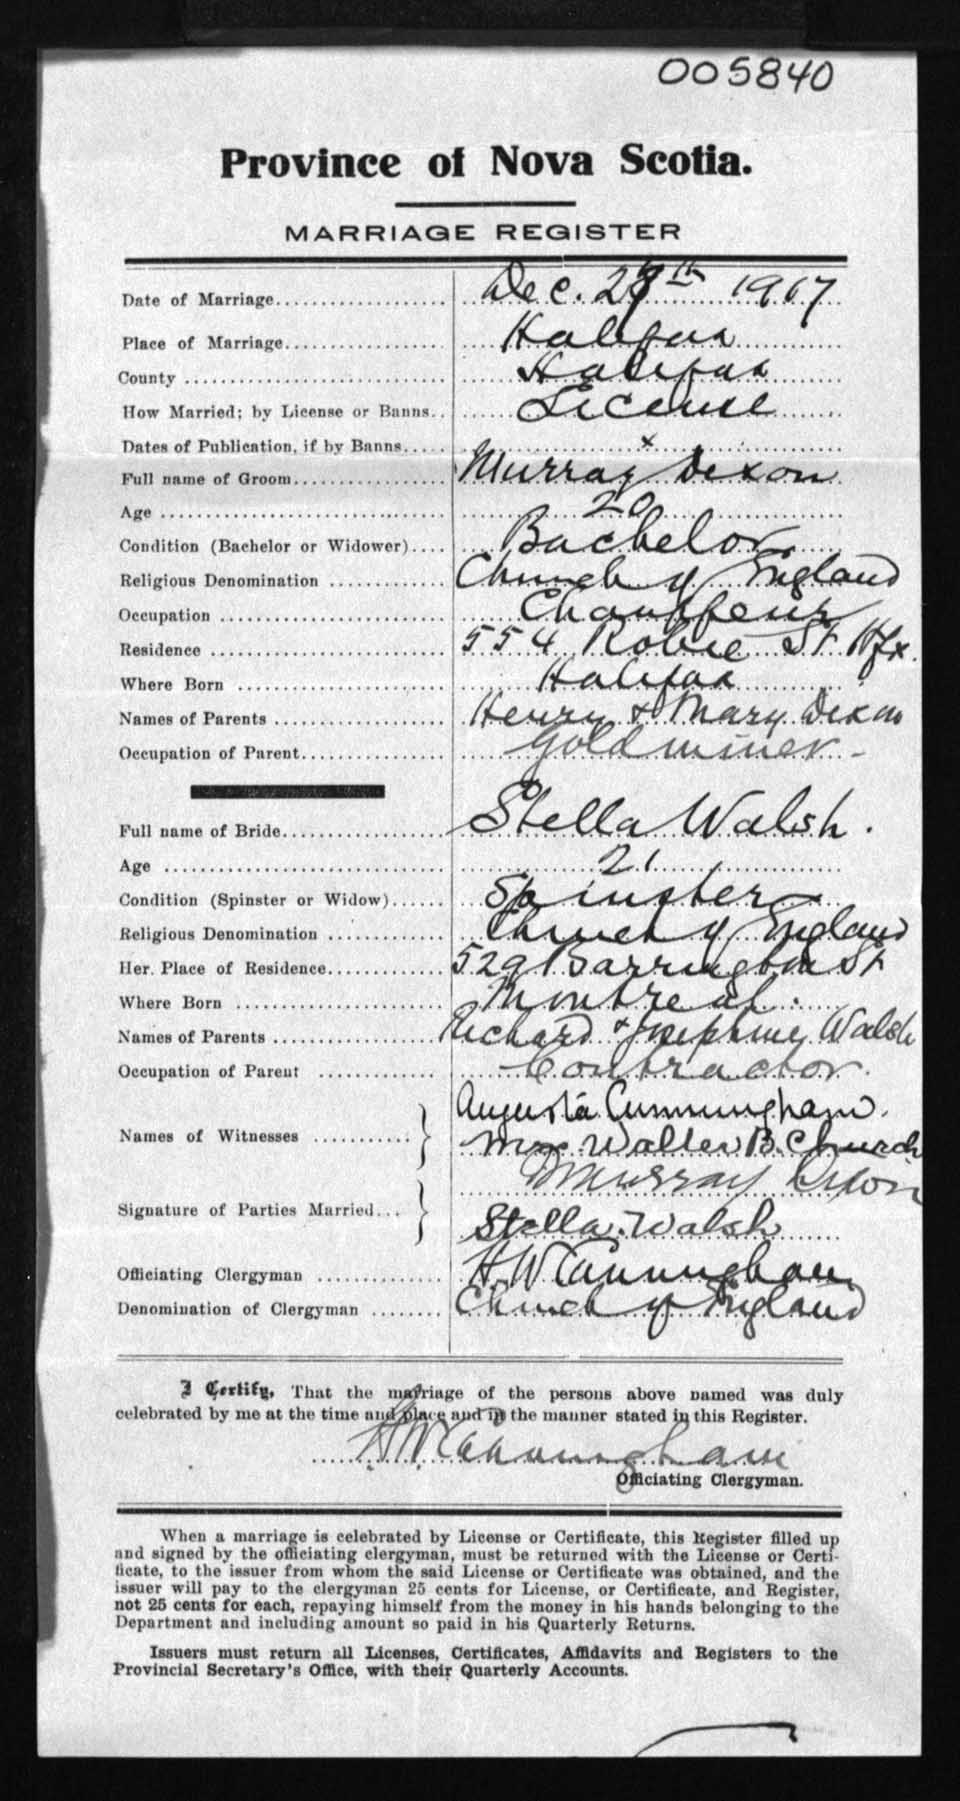 005840
Province of Nova Scotia.
MARRIAGE REGISTER
Date of Marriage Dec. 27th 1917
Place of Marriage Halifax
County Halifax
How Married; by License or Banns License
Dates of Publication, if by Banns x
Full name of Groom Murray Dixon
Age 20
Condition (Bachelor or Widower) Bachelor
Religious Denomination Church of England
Occupation Chauffeur
Residence 554 Robie St Hfx.
Where Born Halifax
Names of Parents Henry & Mary Dixon
Occupation of Parent Gold miner -
Full name of Bride Stella Walsh.
Age 21
Condition (Spinster or Widow) Spinster
Religious Denomination Church of England
Her Place of Residence 529 Barrington St
Where Born Montreal.
Names of Parents Richard & Josephine Walsh
Occupation of Parent Contractor.
Names of Witnesses Augusta Cunningham.
Mrs Walter B. Church
Murray Dixon
Signature of Parties Married
Stella Walsh
Officiating Clergyman H W Cunningham
Denomination of Clergyman Church of England
I Certify, That the marriage of the persons above named was duly
celebrated by me at the time and place and in the manner stated in this Register.
H W Cunningham
Officiating Clergyman.
When a marriage is celebrated by License or Certificate, this Register filled up
and signed by the officiating clergyman, must be returned with the License or Certi-
ficate, to the issuer from whom the said License or Certificate was obtained, and the
issuer will pay to the clergyman 25 cents for License, or Certificate, and Register,
not 25 cents for each, repaying himself from the money in his hands belonging to the
Department and including amount so paid in his Quarterly Returns.
Issuers must return all Licenses, Certificates, Affidavits and Registers to the
Provincial Secretary's Office, with their Quarterly Accounts.